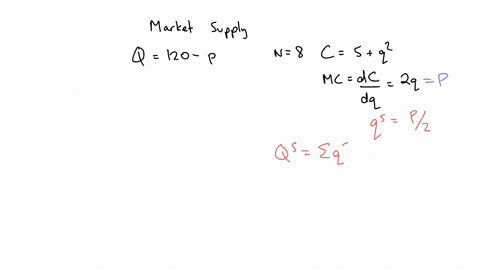 Market Supply
Q = 120 - P
N = 8 C = 5 + q²
MC = dC/dq = 2q = P
qˢ = P/2
Qˢ = Σq